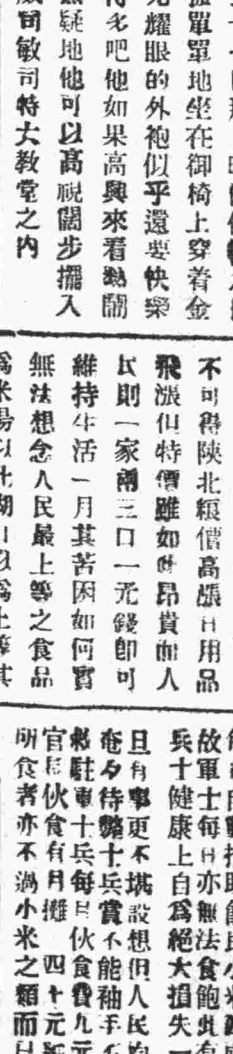 孤單單地坐在御椅上穿着金
光耀眼的外袍似乎還要快樂
得多吧他如果高興來看熱鬧
無疑地他可以高視闊步擺入
威司敏司特大教堂之內
不可得陝北粮價高漲日用品
飛漲但特價雖如此昂貴而人
民則一家兩三口一元錢即可
維持生活一月其苦困如何實
無法想念人民最上等之食品
爲米湯以此湖口以爲上等其
故軍士每日亦無法食飽此有
兵士健康上自爲絕大損失一
旦有事更不堪設想但人民
奄夕待斃士兵嘗不能袖手
救駐軍士兵每月伙食費九元
官長伙食有月攤四十元
所食者亦不過小米之類而已